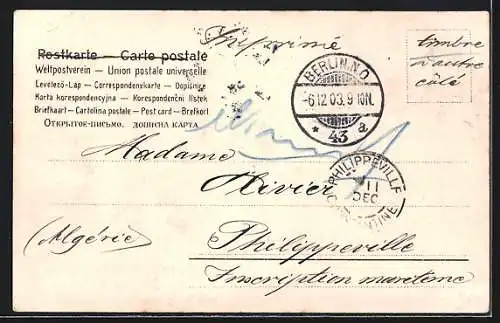 Postkarte — Carte postale
Weltpostverein — Union postale universelle
Levelező-Lap — Correspondenzkarte — Dopisnice
Karta korespondencyjna — Korespondenční lístek
Briefkaart — Cartolina postale — Post card — Brefkort
Открытое-письмо. дописна карта
Imprimé
timbre
d'autre
côté
BERLIN.N.O.
-6.12.03.9-10N.
* 43 a
PHILIPPEVILLE
11
DEC
CONSTANTINE
Madame
Olivier
(Algérie)
Philippeville
Inscription maretime